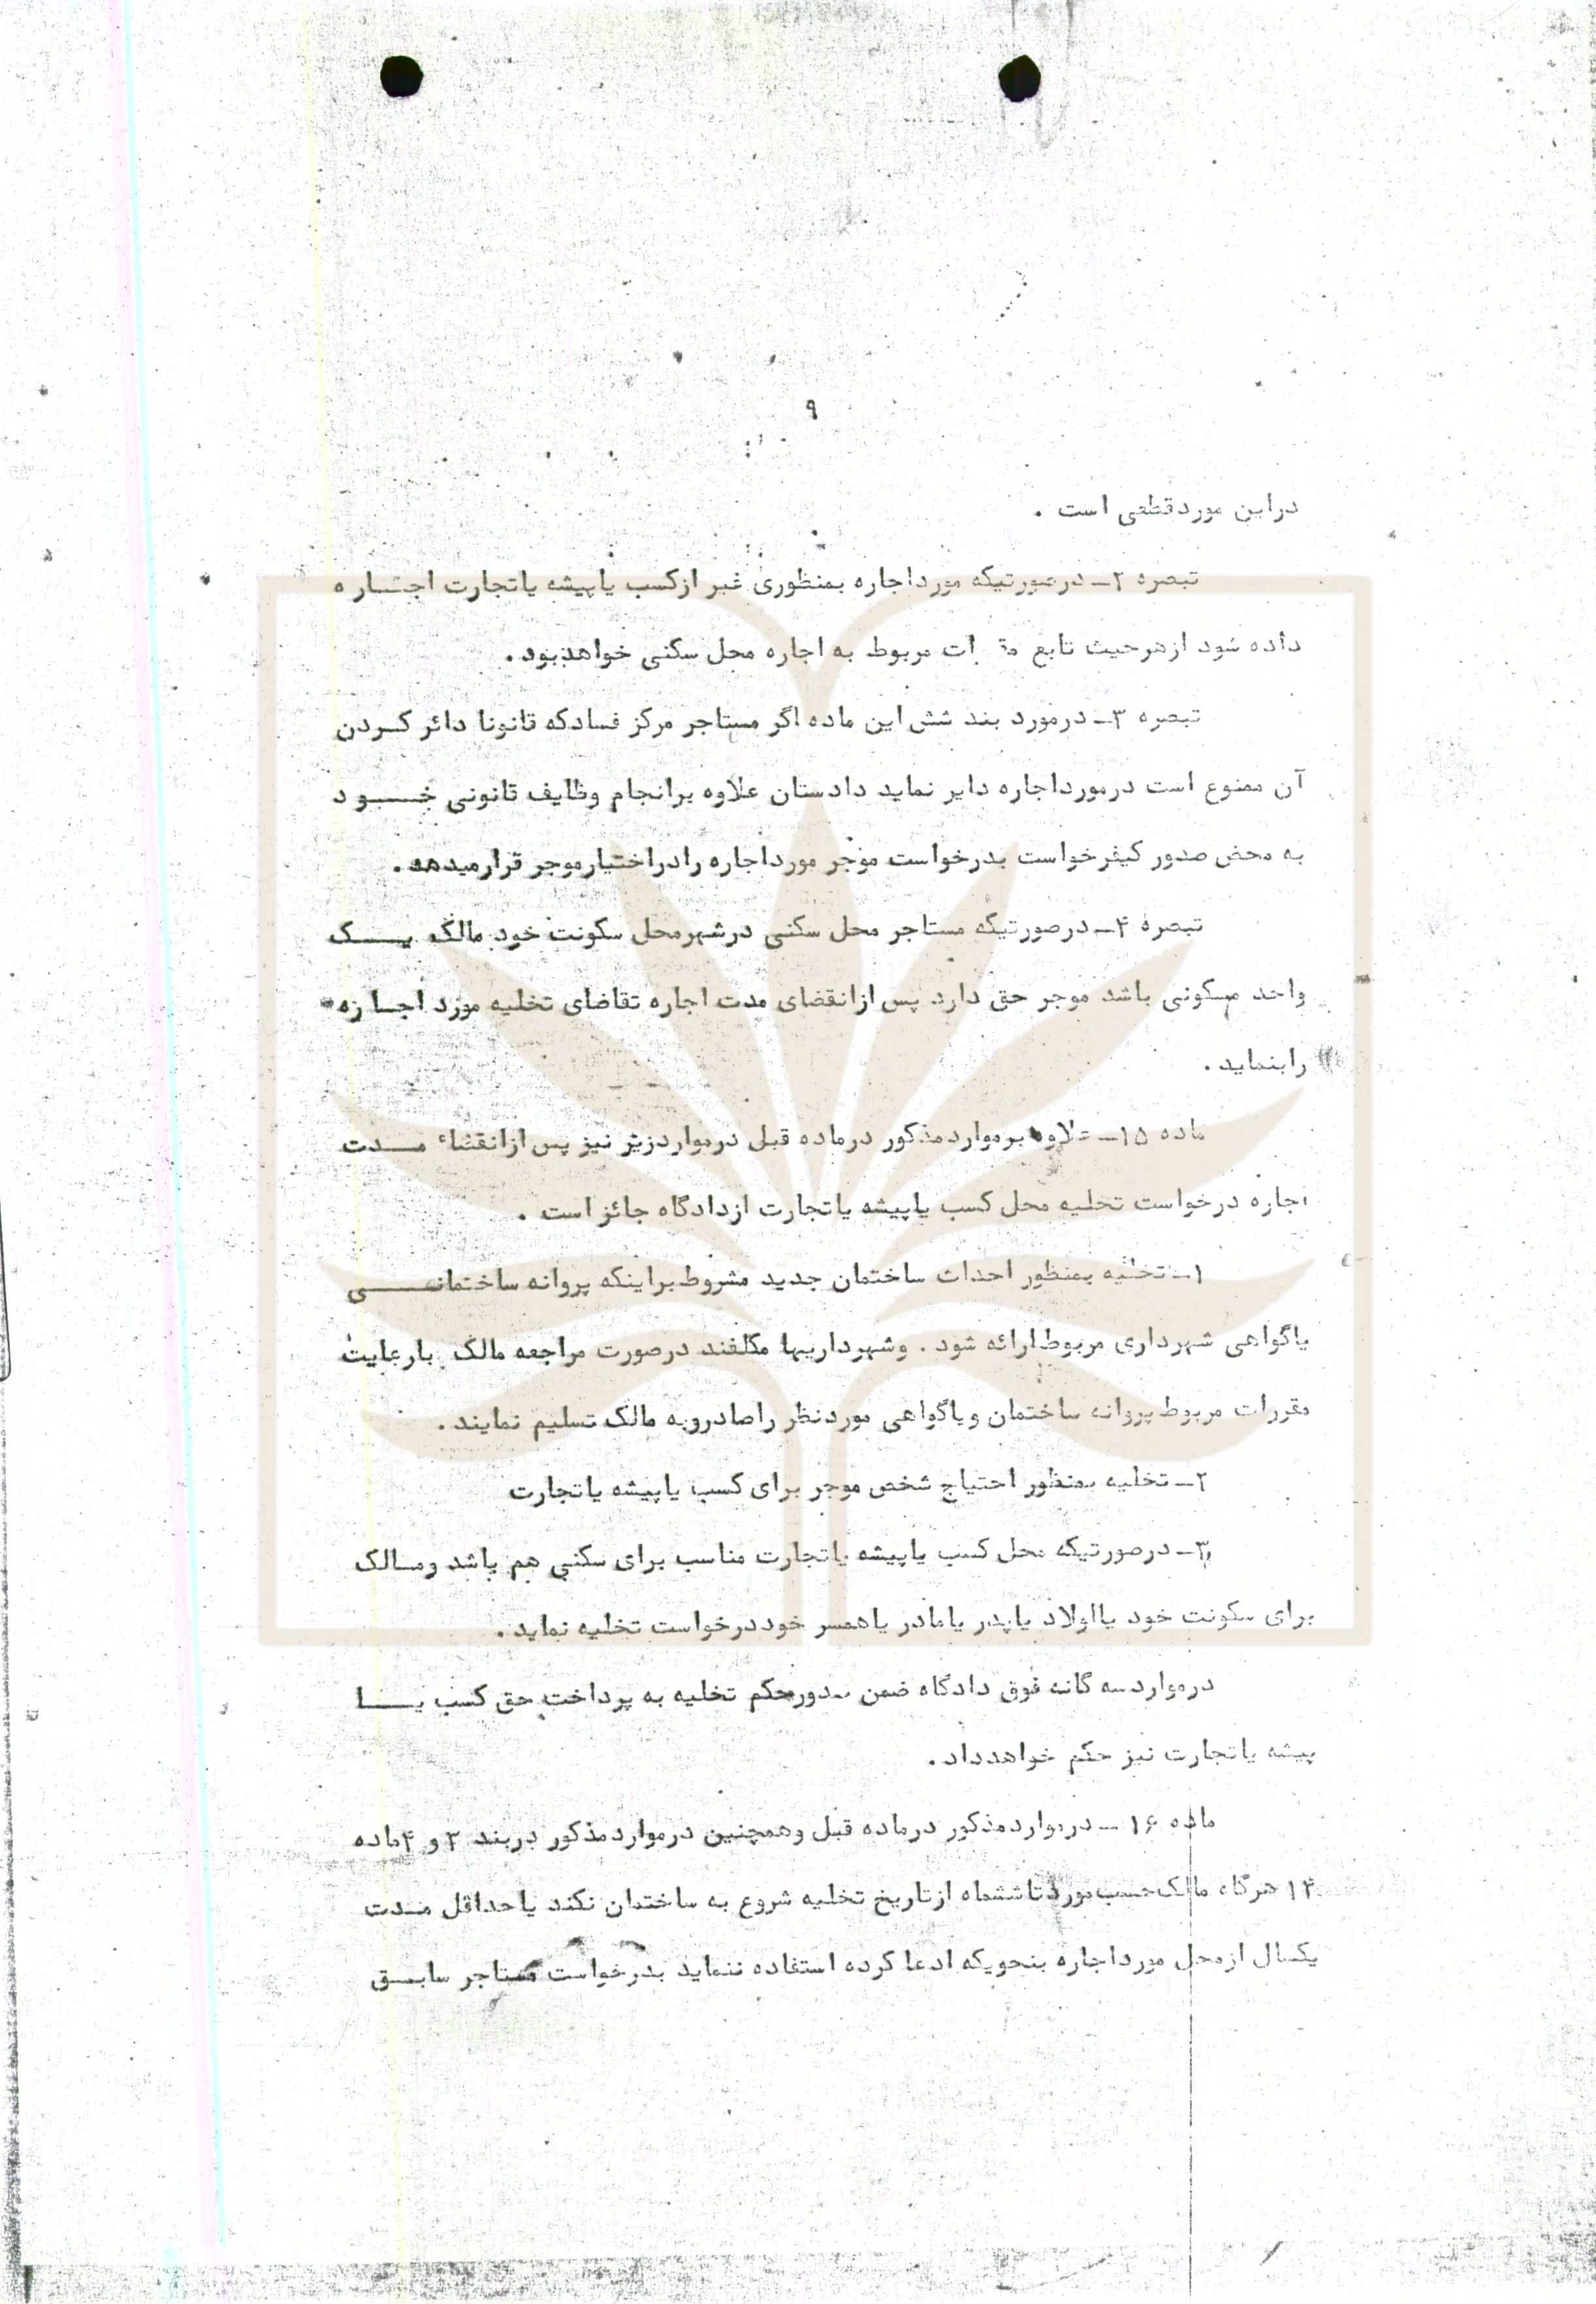 ۹
دراین موردقطعی است .
تبصره ۲ـ درصورتیکه مورداجاره بمنظوری غیر ازکسب یاپیشه یاتجارت اجـاره
داده شود ازهرحیث تابع مربوط به اجاره محل سکنی خواهدبود.
تبصره ۳ـ درمورد بند شش این ماده اگر مستاجر مرکز فسادکه قانونا دائر کـردن
آن ممنوع است درمورداجاره دایر نماید دادستان علاوه برانجام وظایف قانونی خـود
به محض صدور کیفرخواست بدرخواست موجر مورداجاره رادراختیارموجر قرارمیدهد.
تبصره ۴ـ درصورتیکه مستاجر محل سکنی درشهرمحل سکونت خود مالک یـک
واحد مسکونی باشد موجر حق دارد پس ازانقضای مدت اجاره تقاضای تخلیه مورد اجـاره
رابنماید .
ماده ۱۵ـ علاوه برمواردمذکور درماده قبل درمواردزیر نیز پس ازانقضاء مـدت
اجاره درخواست تخلیه محل کسب یاپیشه یاتجارت ازدادگاه جائز است .
۱ـ تخلیه بمنظور احداث ساختمان جدید مشروط براینکه پروانه ساختمانـی
یاگواهی شهرداری مربوط ارائه شود . وشهرداریها مکلفند درصورت مراجعه مالک بارعایت
مقررات مربوط پروانه ساختمان ویاگواهی موردنظر راصادروبه مالک تسلیم نمایند .
۲ـ تخلیه بمنظور احتیاج شخص موجر برای کسب یاپیشه یاتجارت
۳ـ درصورتیکه محل کسب یاپیشه یاتجارت مناسب برای سکنی هم باشد ومـالک
برای سکونت خود یااولاد یاپدر یامادر یاهمسر خوددرخواست تخلیه نماید .
درمواردسه گانه فوق دادگاه ضمن صدورحکم تخلیه به پرداخت حق کسب یـا
پیشه یاتجارت نیز حکم خواهدداد .
ماده ۱۶ ـ درمواردمذکور درماده قبل وهمچنین درمواردمذکور دربند ۳ و ۴ماده
۱۴ هرگاه مالک حسب مورد تاششماه ازتاریخ تخلیه شروع به ساختمان نکند یاحداقل مـدت
یکسال ازمحل مورداجاره بنحویکه ادعا کرده استفاده ننماید بدرخواست مستاجر سابـق